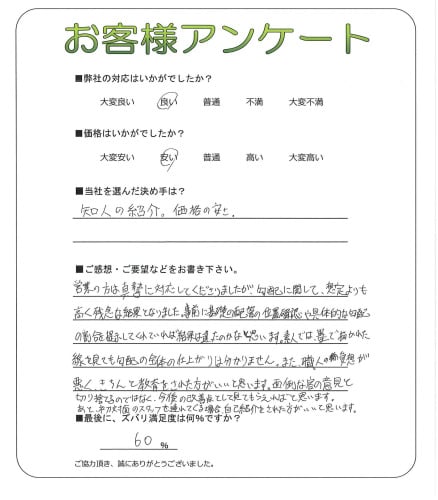 お客様アンケート
■弊社の対応はいかがでしたか?
大変良い 良い 普通 不満 大変不満
■価格はいかがでしたか?
大変安い 安い 普通 高い 大変高い
■当社を選んだ決め手は?
知人の紹介。価格の安さ。
■ご感想・ご要望などをお書き下さい。
営業の方は真摯に対応してくださりましたが勾配に関して、想定よりも
高く残念な結果となりました。事前に基礎の配管の位置確認や具体的な勾配
の割合を提示してくれていれば結果は違たのかなと思います。素人では、墨で描かれた
線を見ても勾配の全体の仕上がりは分かりません。また、職人の が
悪く、きちんと教育をされた方がいいと思います。面倒な客の意見と
切り捨てるのではなく、今後の改善点として見てもらえればと思います。
あと、初対面のスタッフを連れてくる場合、自己紹介をされた方がいいと思います。
■最後に、ズバリ満足度は何%ですか?
60 %
ご協力頂き、誠にありがとうございました。